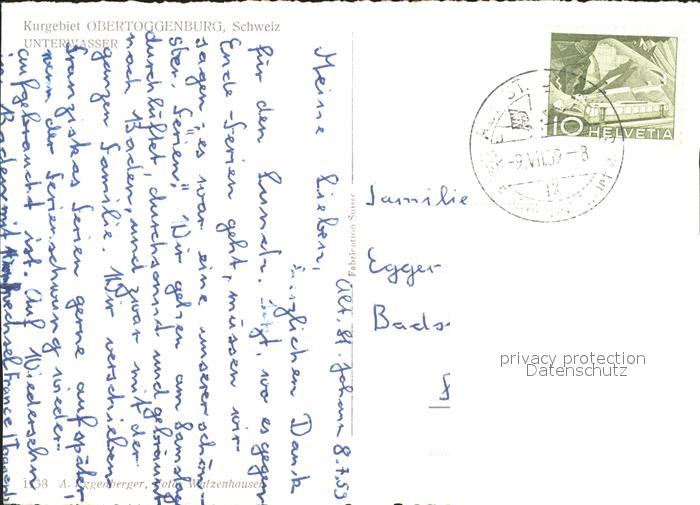 Kurgebiet OBERTOGGENBURG, Schweiz
UNTERWASSER
Alt. St. Johann 8.7.59
Meine Lieben,
herzlichen Dank
für den Lunch. Jetzt, wo es gegen
Ende - Ferien geht, müssen wir
sagen: "es war eine unserer schön-
sten Ferien". Wir gehen am Samstag
durchlüftet, durchsonnt und gebräunt
nach Baden, und zwar mit der
ganzen Familie. Wir verschieben
Franziskas Ferien gerne auf später,
wenn der Ferienschwung wieder
aufgebraucht ist. Auf Wiedersehn
in Baden mit
1138 A. Eggenberger, Foto, Walzenhausen
Fabrication Suisse
10 HELVETIA
-9.VII.59-8
Familie
Egger
Bads
privacy protection
Datenschutz